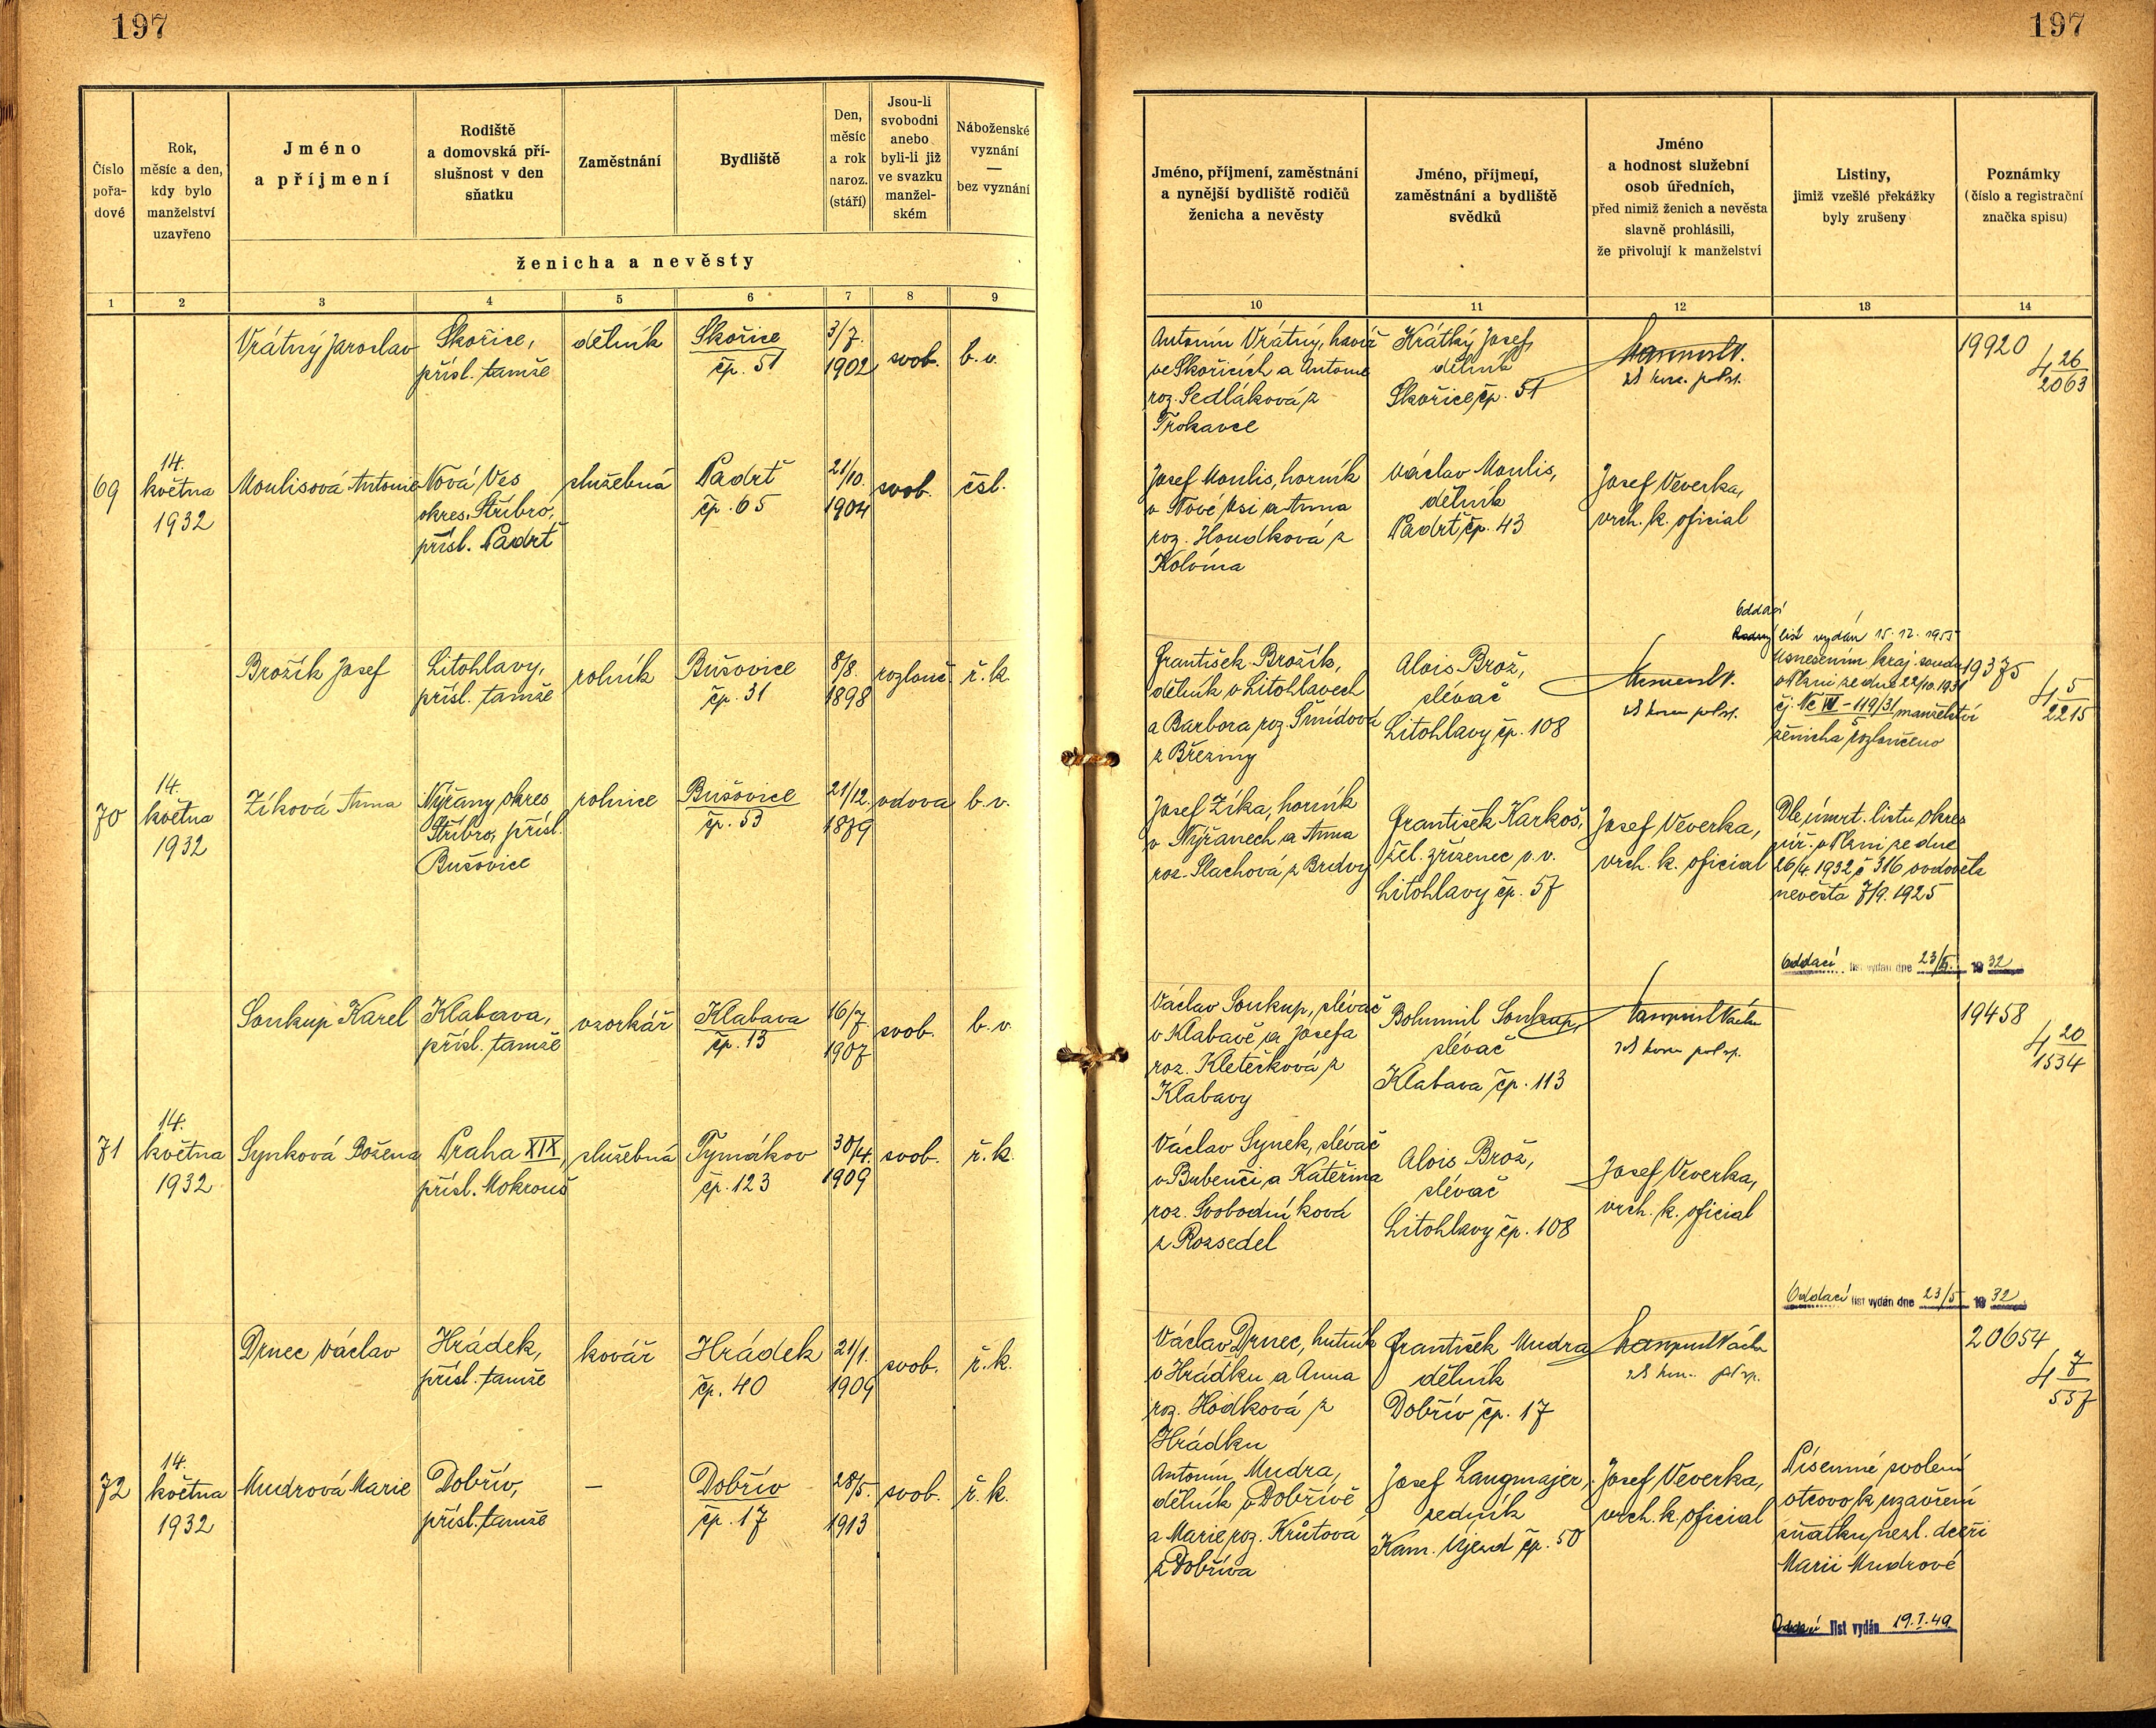 197
197
Číslo
pořa-
dové
Rok,
měsíc a den,
kdy bylo
manželství
uzavřeno
Jméno
a příjmení
Rodiště
a domovská pří-
slušnost v den
sňatku
Zaměstnání
Bydliště
Den,
měsíc
a rok
naroz.
(stáří)
Jsou-li
svobodni
anebo
byli-li již
ve svazku
manžel-
ském
Náboženské
vyznání
—
bez vyznání
ženicha a nevěsty
Jméno, příjmení, zaměstnání
a nynější bydliště rodičů
ženicha a nevěsty
Jméno, příjmení,
zaměstnání a bydliště
svědků
Jméno
a hodnost služební
osob úředních,
před nimiž ženich a nevěsta
slavně prohlásili,
že přivolují k manželství
Listiny,
jimiž vzešlé překážky
byly zrušeny
Poznámky
(číslo a registrační
značka spisu)
1 2 3 4 5 6 7 8 9
10 11 12 13 14
Vrátný Jaroslav
Skořice,
přísl. tamže
dělník
Skořice
čp. 51
3/7.
1902
svob.
b. v.
Antonín Vrátný, havíř
ve Skořicích a Antonie
roz. Sedláková z
Trokavce
Krátký Josef,
dělník
Skořice čp. 51
19920
4 26
2063
69
14.
května
1932
Moulisová Antonie
Nová Ves
okres. Stříbro,
přísl. Padrť
služebná
Padrť
čp. 65
21/10.
1904
svob.
čsl.
Josef Moulis, horník
v Nové Vsi a Anna
roz. Houdková z
Kolvína
Václav Moulis,
dělník
Padrť čp. 43
Josef Veverka,
vrch. k. oficial
Brožík Josef
Litohlavy,
přísl. tamže
rolník
Bušovice
čp. 31
8/8.
1898
rozlouč.
ř. k.
František Brožík,
dělník v Litohlavech
a Barbora roz. Šmídová
z Březiny
Alois Brož,
slévač
Litohlavy čp. 108
Oddací
list vydán 15. 12. 1955
Usnesením kraj. soudu
v Plzni ze dne 22/10. 1931
čj. Nc IV - 119/31 manželství
ženicha rozloučeno
19375
4 5
2215
70
14.
května
1932
Zíková Anna
Nýřany okres
Stříbro, přísl.
Bušovice
rolnice
Bušovice
čp. 53
21/12.
1889
vdova
b. v.
Josef Zíka, horník
v Nýřanech a Anna
roz. Slachová z Brdvy
František Karkoš,
žel. zřízenec v. v.
Litohlavy čp. 57
Josef Veverka,
vrch. k. oficial
Dle úmrt. listu okres
úř. v Plzni ze dne
26/4 1932 č 316 ovdověla
nevěsta 7/9. 1925
Oddací list vydán dne 23/5. 1932
Soukup Karel
Klabava,
přísl. tamže
vzorkář
Klabava
čp. 13
16/7.
1907
svob.
b. v.
Václav Soukup, slévač
v Klabavě a Josefa
roz. Kletečková z
Klabavy
Bohumil Soukup,
slévač
Klabava čp. 113
19458
4 20
1534
71
14.
května
1932
Synková Božena
Praha XIX,
přísl. Mokrouš
služebná
Tymákov
čp. 123
30/4.
1909
svob.
ř. k.
Václav Synek, slévač
v Bubenči a Kateřina
roz. Svobodníková
z Rozsedel
Alois Brož,
slévač
Litohlavy čp. 108
Josef Veverka,
vrch. k. oficial
Oddací list vydán dne 23/5 1932
Drnec Václav
Hrádek,
přísl. tamže
kovář
Hrádek
čp. 40
21/1.
1909
svob.
ř. k.
Václav Drnec, hutník
v Hrádku a Anna
roz. Hodková z
Hrádku
František Mudra
dělník
Dobřív čp. 17
20654
4 7
557
72
14.
května
1932
Mudrová Marie
Dobřív,
přísl. tamže
—
Dobřív
čp. 17
28/5.
1913
svob.
ř. k.
Antonín Mudra,
dělník v Dobřívě
a Marie roz. Krůtová
z Dobříva
Josef Langmajer,
zedník
Kam. Újezd čp. 50
Josef Veverka,
vrch. k. oficial
Písemné svolení
otcovo k uzavření
sňatku nezl. dceři
Marii Mudrové
Oddací list vydán 19. I. 49.